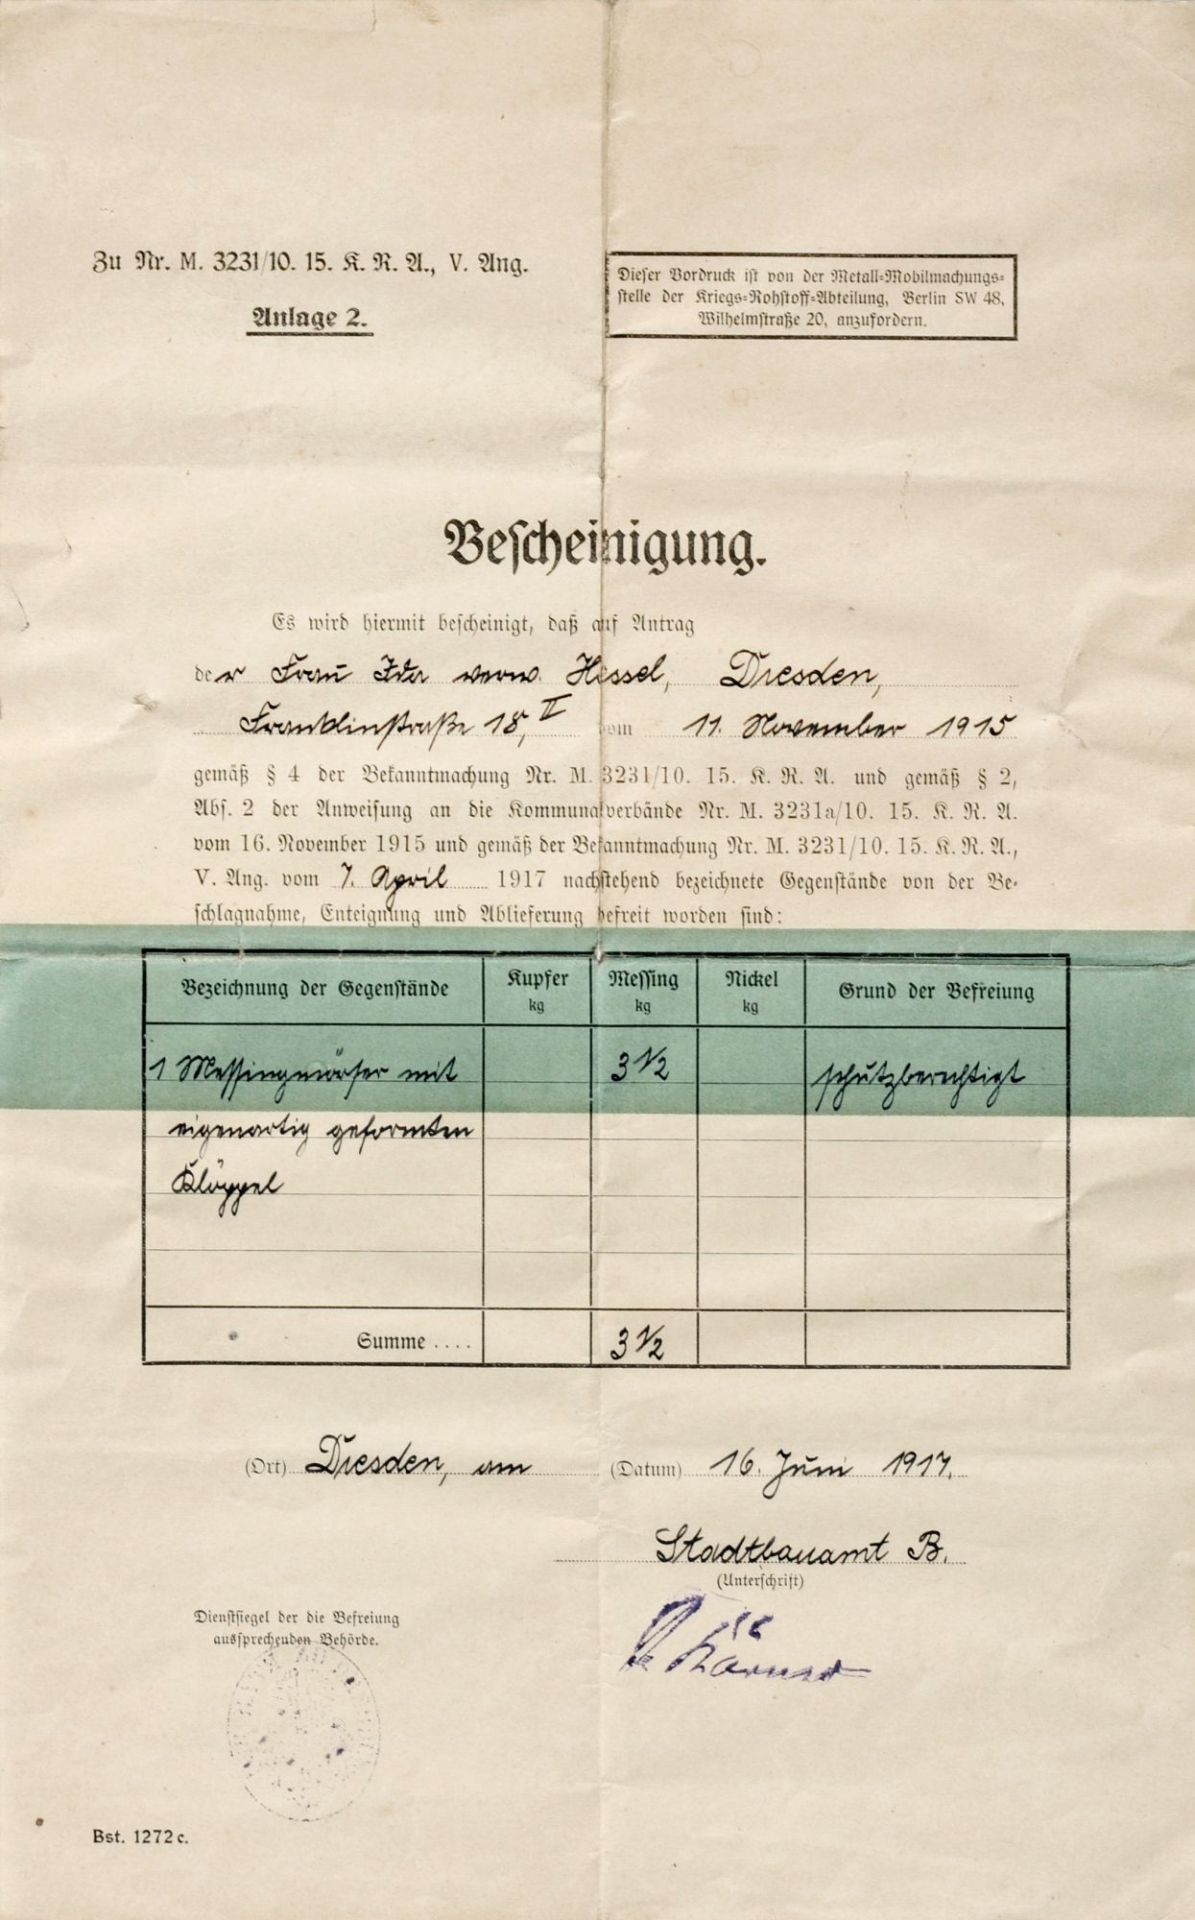 Zu Nr. M. 3231/10. 15. K. R. A., V. Ang.
Anlage 2.
Dieser Vordruck ist von der Metall-Mobilmachungs-
stelle der Kriegs-Rohstoff-Abteilung, Berlin SW 48,
Wilhelmstraße 20, anzufordern.
Bescheinigung.
Es wird hiermit bescheinigt, daß auf Antrag
der Frau Ida verw. Hessel, Dresden,
Franklinstraße 18, II vom 11. November 1915
gemäß § 4 der Bekanntmachung Nr. M. 3231/10. 15. K. R. A. und gemäß § 2,
Abs. 2 der Anweisung an die Kommunalverbände Nr. M. 3231a/10. 15. K. R. A.
vom 16. November 1915 und gemäß der Bekanntmachung Nr. M. 3231/10. 15. K. R. A.,
V. Ang. vom 7. April 1917 nachstehend bezeichnete Gegenstände von der Be-
schlagnahme, Enteignung und Ablieferung befreit worden sind:
Bezeichnung der Gegenstände Kupfer kg Messing kg Nickel kg Grund der Befreiung
1 Messingmörser mit 3 1/2 schutzberechtigt
eigenartig geformten
Klöppel
Summe .... 3 1/2
(Ort) Dresden, am (Datum) 16. Juni 1917.
Stadtbauamt B.
(Unterschrift)
Dienstsiegel der die Befreiung
aussprechenden Behörde.
Bst. 1272 c.